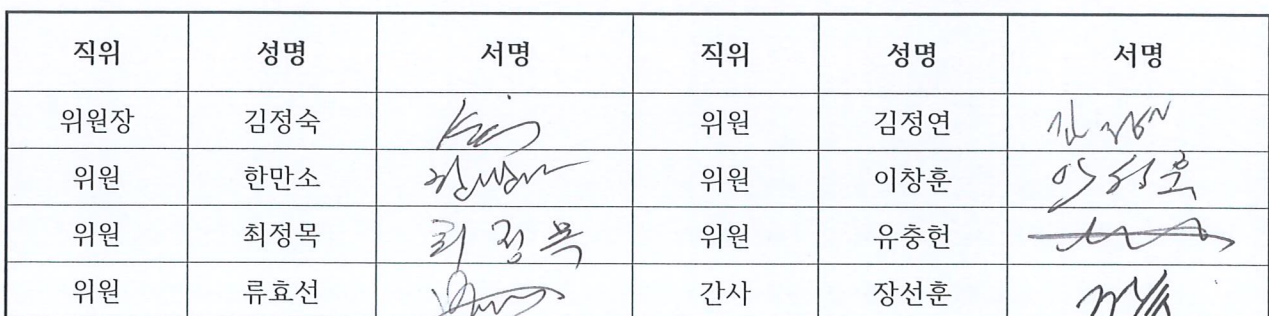 직위 성명 서명 직위 성명 서명
위원장 김정숙 위원 김정연
위원 한만소 위원 이창훈
위원 최정목 최정목 위원 유충헌
위원 류효선 간사 장선훈